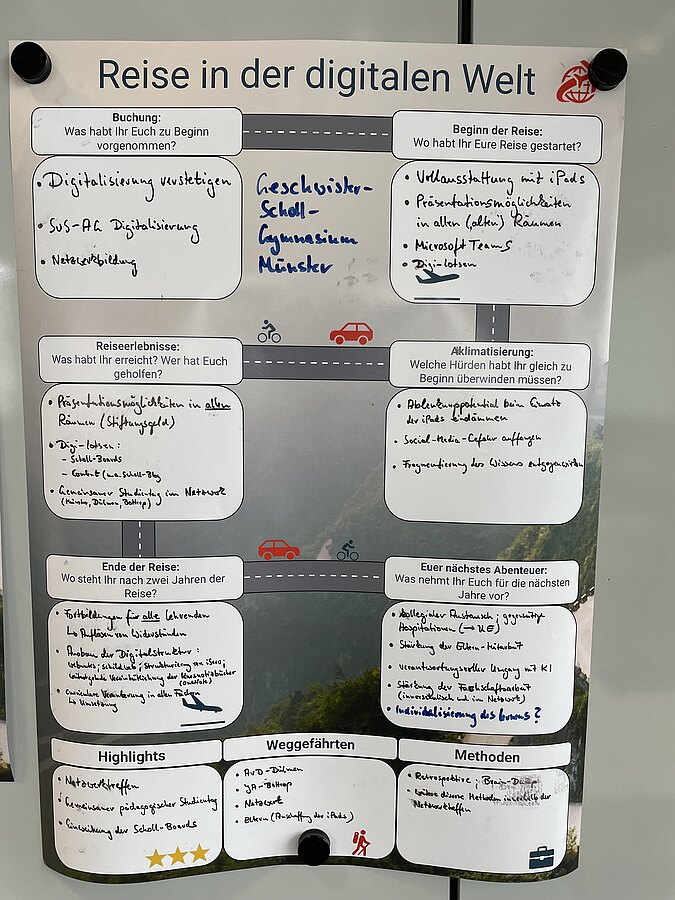 Reise in der digitalen Welt
Buchung:
Was habt Ihr Euch zu Beginn
vorgenommen?
• Digitalisierung verstetigen
• SuS-AG Digitalisierung
• Netzwerkbildung
Geschwister-
Scholl-
Gymnasium
Münster
Beginn der Reise:
Wo habt Ihr Eure Reise gestartet?
• Vollausstattung mit iPads
• Präsentationsmöglichkeiten
in allen (alten) Räumen
• Microsoft Teams
• Digi-lotsen
Reiseerlebnisse:
Was habt Ihr erreicht? Wer hat Euch
geholfen?
• Präsentationsmöglichkeiten in allen
Räumen (Stiftungsgeld)
• Digi-lotsen:
- Scholl-Boards
- Content (u.a. Scholl-Blog
• Gemeinsamer Studientag im Netzwerk
(Münster, Dülmen, Bottrop)
Aklimatisierung:
Welche Hürden habt Ihr gleich zu
Beginn überwinden müssen?
• Ablenkungspotential beim Einsatz
der iPads eindämmen
• Social-Media-Gefahr auffangen
• Fragmentierung des Wissens entgegenwirken
Ende der Reise:
Wo steht Ihr nach zwei Jahren der
Reise?
• Fortbildungen für alle Lehrenden
↳ Auflösen von Widerständen
• Ausbau der Digitalstruktur:
Strukturierung von iServ;
(OneNote)
• curriculare Verankerung in allen Fächern
↳ Umsetzung
Euer nächstes Abenteuer:
Was nehmt Ihr Euch für die nächsten
Jahre vor?
• kollegialer Austausch; gegenseitige
Hospitationen (→ UE)
• Stärkung der Eltern-Mitarbeit
• verantwortungsvoller Umgang mit KI
• Stärkung der Fachschaftsarbeit
(innerschulisch und im Netzwerk)
• Individualisierung des Lernens?
Highlights
• Netzwerktreffen
• Gemeinsamer pädagogischer Studientag
• Einweihung der Scholl-Boards
Weggefährten
• AvD-Dülmen
• JA-Bottrop
• Netzwerk
• Eltern (Anschaffung der iPads)
Methoden
• Retrospektive; Brain-Dump
• weitere diverse Methoden innerhalb der
Netzwerktreffen